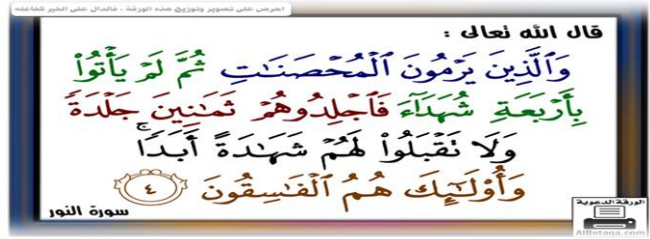 احرص على تصوير وتوزيع هذه الورقة ، فالدال على الخير كفاعله
قال الله تعالى :
وَٱلَّذِينَ يَرْمُونَ ٱلْمُحْصَنَـٰتِ ثُمَّ لَمْ يَأْتُوا۟
بِأَرْبَعَةِ شُهَدَآءَ فَٱجْلِدُوهُمْ ثَمَـٰنِينَ جَلْدَةً
وَلَا تَقْبَلُوا۟ لَهُمْ شَهَـٰدَةً أَبَدًا ۚ
وَأُو۟لَـٰٓئِكَ هُمُ ٱلْفَـٰسِقُونَ ٤
سورة النور
الورقة الدعوية
AlBetaqa.com